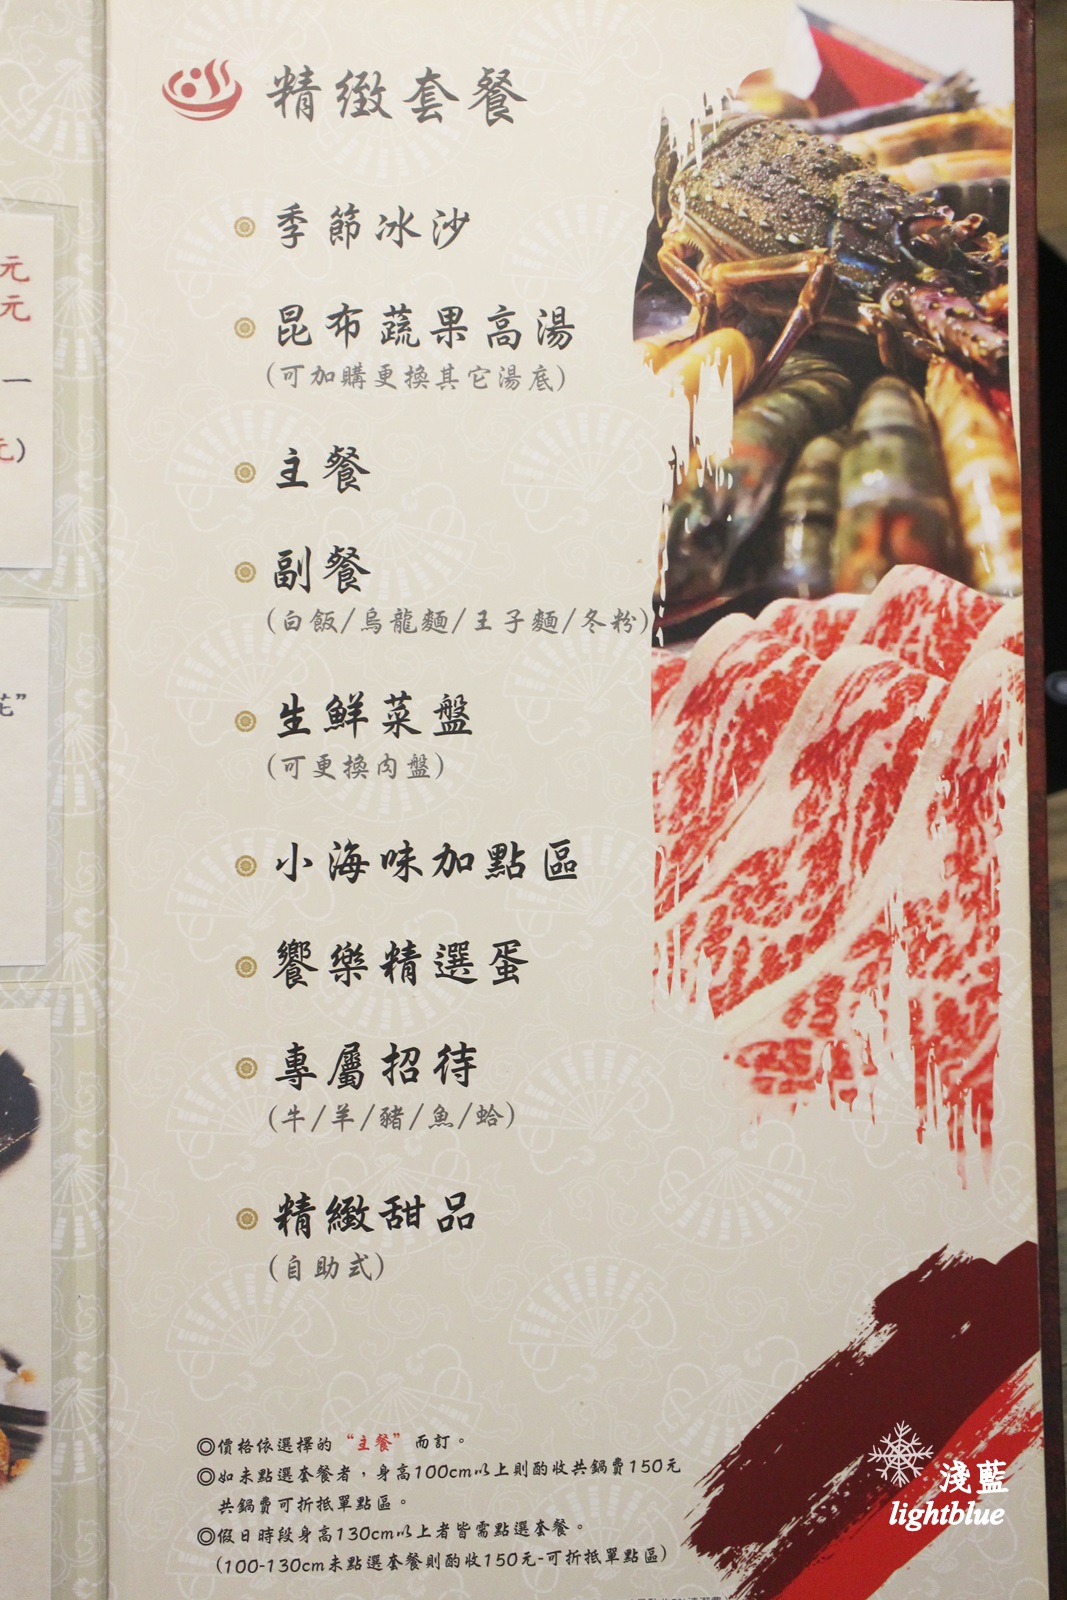 元
元
一
元)
花”
精緻套餐
季節冰沙
昆布蔬果高湯
(可加購更換其它湯底)
主餐
副餐
(白飯/烏龍麵/王子麵/冬粉)
生鮮菜盤
(可更換肉盤)
小海味加點區
饗樂精選蛋
專屬招待
(牛/羊/豬/魚/蛤)
精緻甜品
(自助式)
◎價格依選擇的“主餐”而訂。
◎如未點選套餐者，身高100cm以上則酌收共鍋費150元
共鍋費可折抵單點區。
◎假日時段身高130cm以上者皆需點選套餐。
(100-130cm未點選套餐則酌收150元-可折抵單點區)
淺藍
lightblue